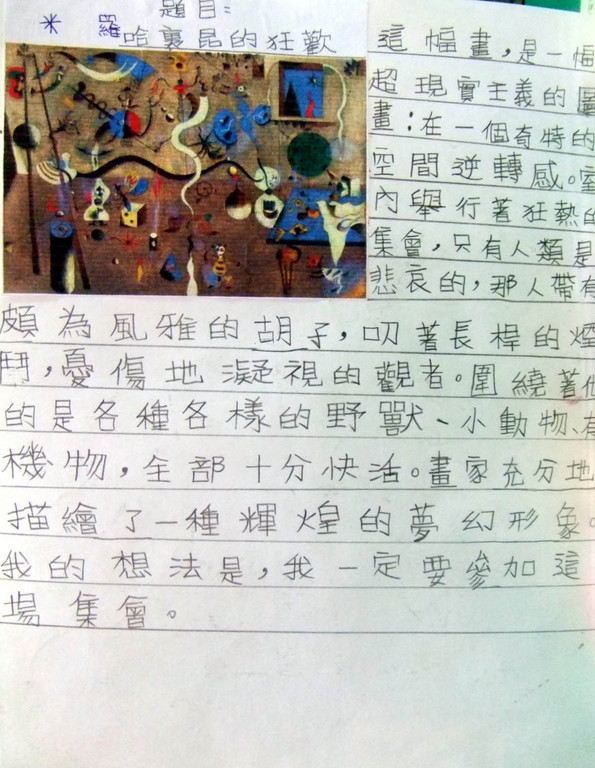 題目:
* 羅
哈裏昆的狂歡
這幅畫,是一幅
超現實主義的圖
畫:在一個奇特的
空間逆轉感。室
內舉行著狂熱的
集會,只有人類是
悲哀的,那人帶有
頗為風雅的胡子,叨著長桿的煙
鬥,憂傷地凝視的觀者。圍繞著他
的是各種各樣的野獸、小動物、有
機物,全部十分快活。畫家充分地
描繪了一種輝煌的夢幻形象。
我的想法是,我一定要參加這
場集會。